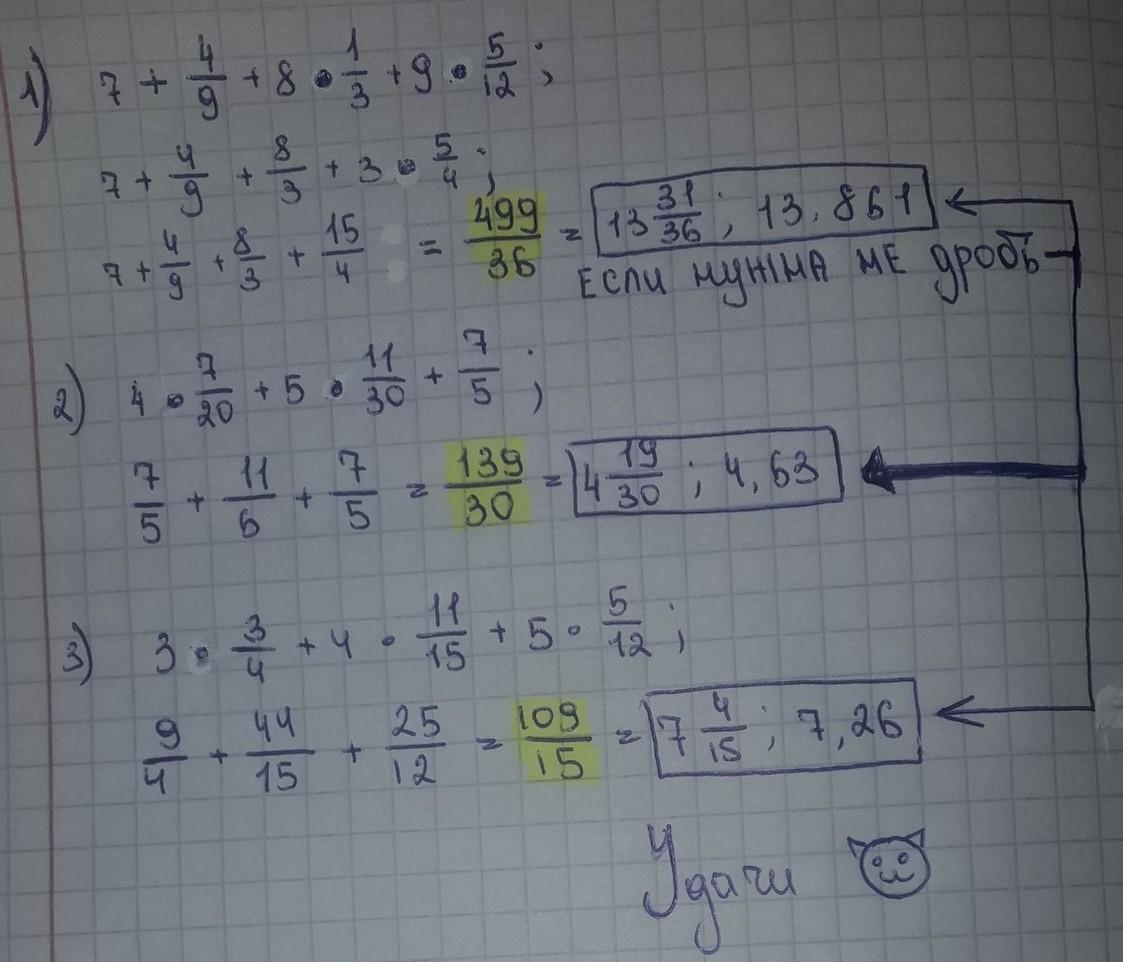 1) 7 + 4/9 + 8 • 1/3 + 9 • 5/12 ;
7 + 4/9 + 8/3 + 3 • 5/4 ;
7 + 4/9 + 8/3 + 15/4 = 499/36 = 13 31/36 ; 13.861
ЕСЛИ НУЖНА НЕ дробь
2) 4 • 7/20 + 5 • 11/30 + 7/5 ;
7/5 + 11/6 + 7/5 = 139/30 = 4 19/30 ; 4,63
3) 3 • 3/4 + 4 • 11/15 + 5 • 5/12 ;
9/4 + 44/15 + 25/12 = 109/15 = 7 4/15 ; 7,26
Удачи